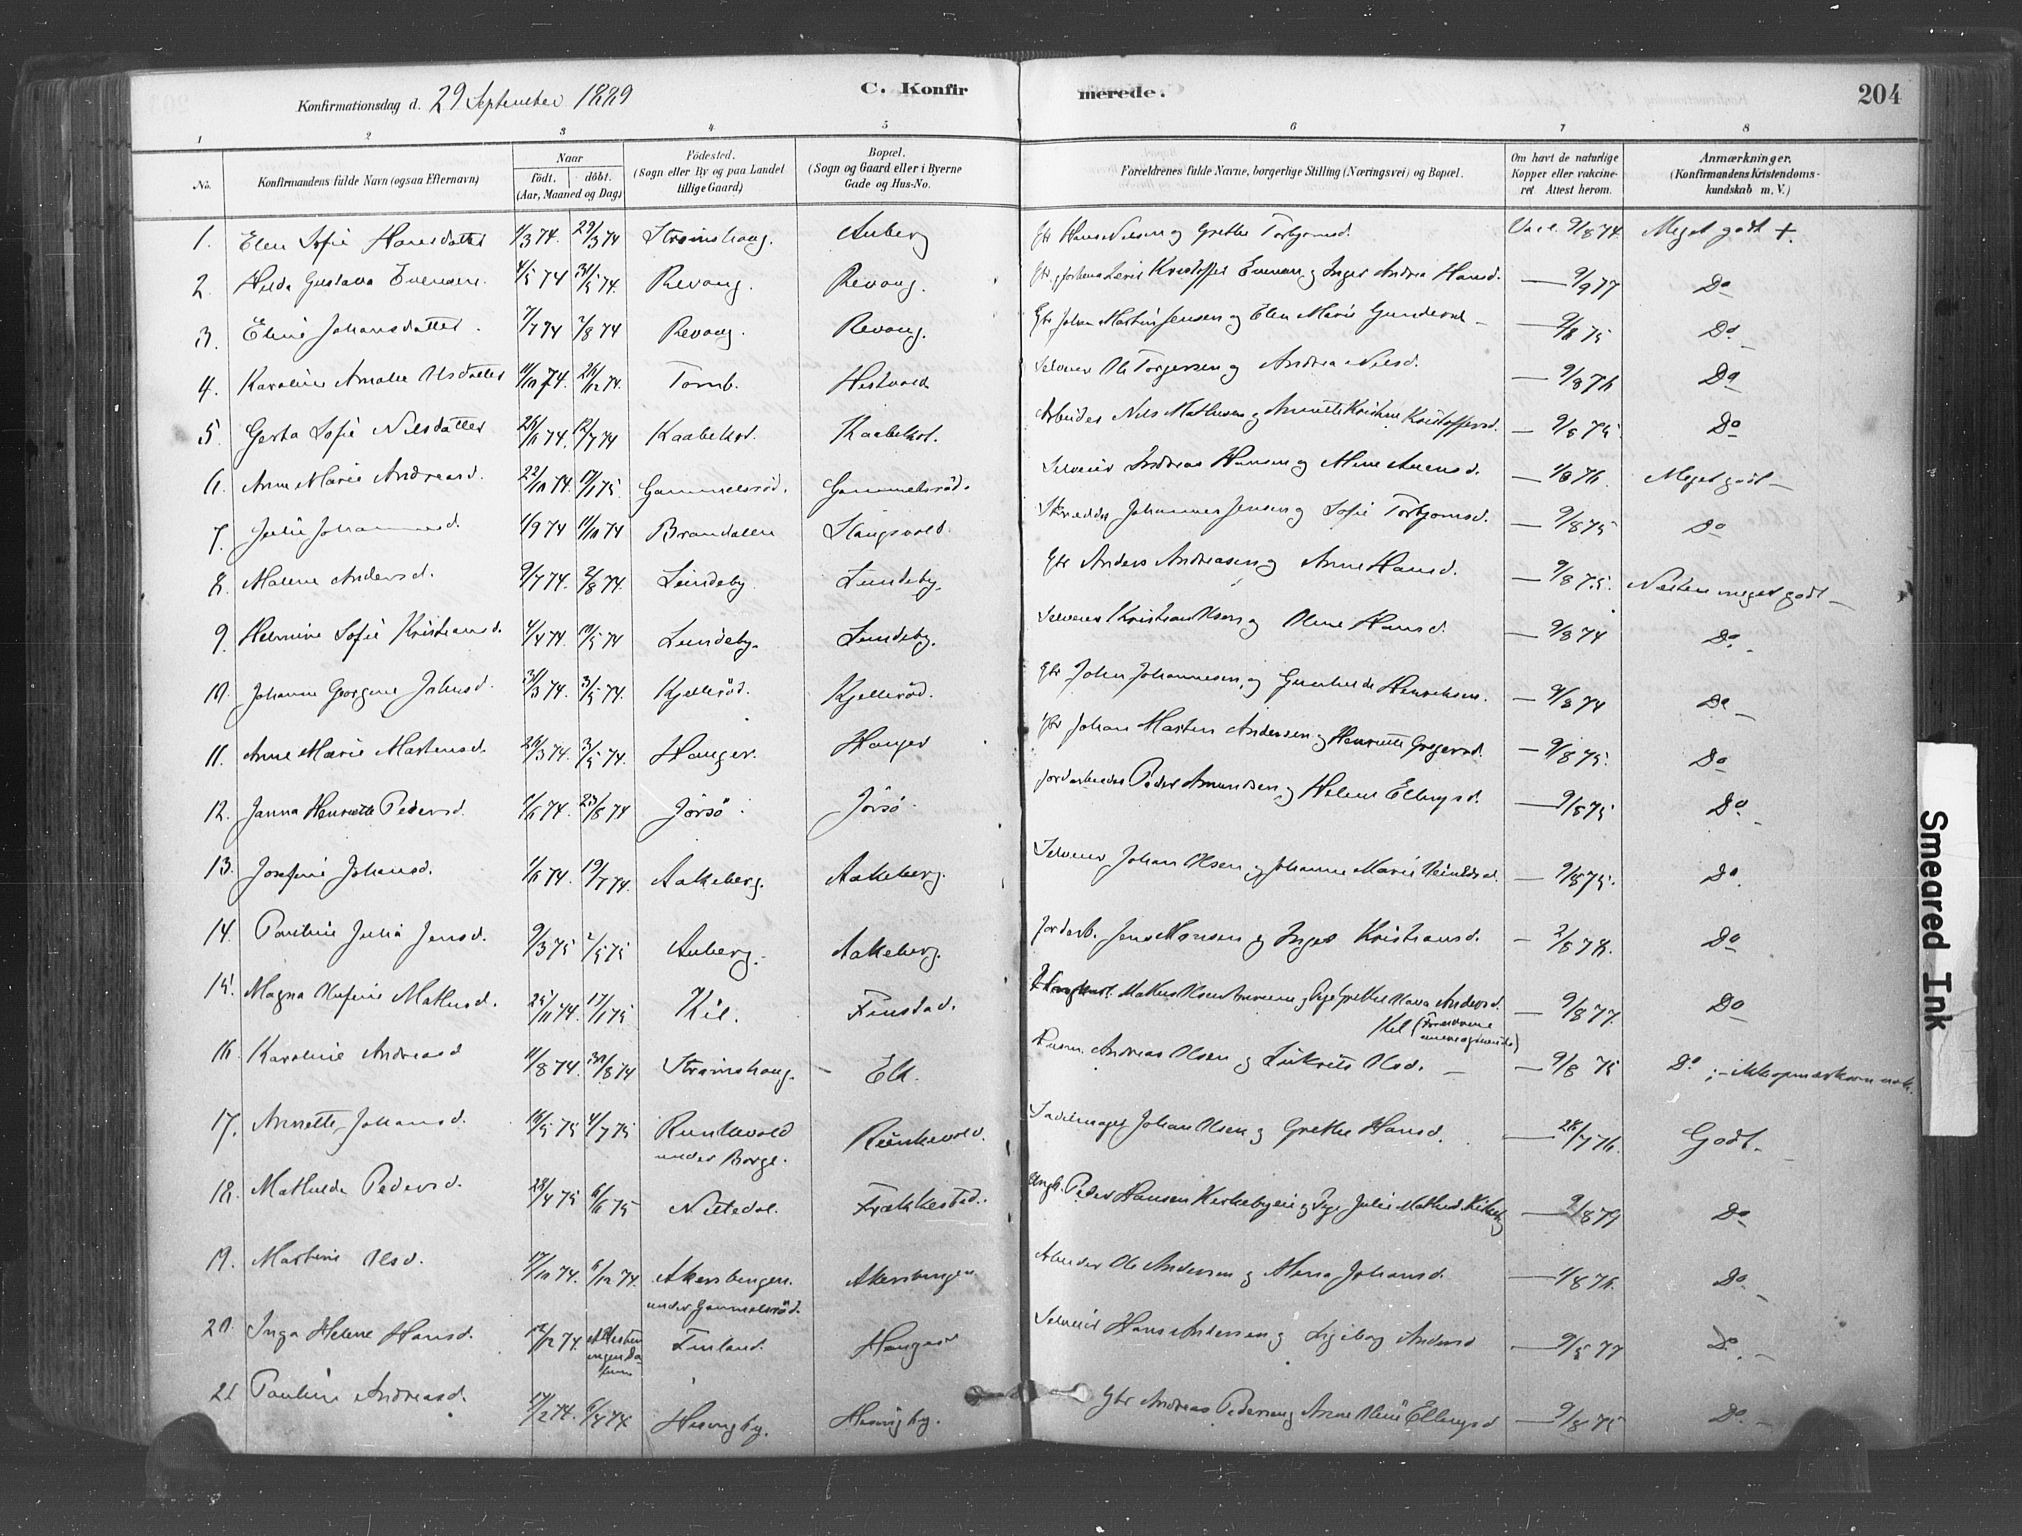 Konfirmationsdag d. 29 September 1889 C. Konfirmerede. 204
1 2 3 4 5 6 7 8
No. Konfirmandens fulde Navn (ogsaa Efternavn) Naar födt. döbt. (Aar, Maaned og Dag) Födested. (Sogn eller By og paa Landet tillige Gaard) Bopæl. (Sogn og Gaard eller i Byerne Gade og Hus-No.) Forældrenes fulde Navne, borgerlige Stilling (Næringsvei) og Bopæl. Om havt de naturlige Kopper eller vakcineret Attest herom. Anmærkninger. (Konfirmandens Kristendomskundskab m. V.)
1. Elen Sofie Hansdatter 1/3 74. 29/3 74 Strömshaug. Auberg Gbr Hans Nilsen og Grethe Torbjornsd. Vacc. 9/8 74. Meget godt +.
2. Hilda Gustava Evensen. 4/5 74 31/5 74. Revoug. Revoug. Kristoffer Evensen og Inger Andrea Hansd. — 9/9 77 Do
3. Eline Johansdatter. 7/7 74 2/8 74 Revoug. Revoug. Gbr Johan Martin Jensen og Elen Marie Gundersd — 9/8 75 Do. —
4. Karoline Amalie Olsdatter 11/10 74. 26/12 74. Tomb. Hestvold Selveier Ole Torgersen og Andrea Nilsd. — 9/8 76 Do
5. Gerta Sofie Nilsdatter 12/7 74 Kaabelrot. Kaabelrot. Arbeider Nils Mathisen og Annette Kristine Kristoffersd. — 9/8 75. Do
6. Anne Marie Andreasd. 22/10 74. 17/1 75 Gammelsröd. Gammelsröd. Selveier Andreas Hansen og Aline Arensd. — 1/8 76. Meget godt —
7. Julie Johannesd. 1/9 74 11/10 74 Brandalen Slangsvold. Skrædder Johannes Jensen og Sofie Torbjornsd. — 9/8 75 Do
8. Malene Andersd. 9/7 74. 2/8 74 Lundeby Lundeby. Gbr Anders Andreasen og Anne Hansd. — 9/8 75. Næsten meget godt —
9. Helmine Sofie Kristiansd. 4/4 74 10/5 74 Lundeby. Lundeby. Selveier Kristian Olsen og Oline Hansd. — 9/8 74 Do. —
10. Johanne Georgine Johnsd. 31/3 74. 3/5 74. Kjelleröd. Kjelleröd. Gbr John Johannesen, og Gunhilde Henriksen. — 9/8 74 Do —
11. Anne Marie Martensd. 26/3 74. 3/5 74. Hauger. Hauger Gbr Johan Marten Andersen og Henriette Gregersd. — 9/8 75. Do
12. Janna Henriette Pedersd. 1/6 74. 23/8 74 Jörsö. Jörsö. Jordarbeider Peder Amundsen og Helene Ellingsd. — 9/8 75 Do —
13. Josefine Johansd. 1/6 74 19/7 74. Aakeberg. Aakeberg. Selveier Johan Olsen og Johanne Marie — 9/8 75. Do.
14. Pauline Julia Jensd. 9/3 75 2/5 75 Auberg. Aakeberg. Jordarb. Jens Hansen og Inger Kristiansd. — 2/8 78. Do
15. Magna Olufine Mathisd. 25/11 74. 17/1 75 Kil. Finstad. Mathis Olsen og Pige Grethe Andersd. — 9/8 77. Do
Kil (Forældrene
16. Karoline Andreasd 11/8 74. 30/8 74 Strömshaug. — Elk. Andreas Olsen og Lukrits Olsd. — — 9/8 75 Do
17. Annette Johansd. 16/5 75 4/7 75 Runkevold under Borge. Runkevold. Sadelmager Johan Olsen og Grethe Hansd. — 28/7 76. Godt. —
18. Mathilde Pedersd. 28/4 75 6/6 75 Nittedal. Frækkestad. Ungk. Peder Hansen Kirkebyeie og Pige Julie Mathisd. Kirkeby — 9/8 79 Do
19. Martine Olsd. 17/10 74. 6/12 74. Akersbergen. under Gammelsröd. Akersbergen Arbeider Ole Andersen og Maria Johansd. — 1/8 76. Do.
20. Inga Helene Hansd. 12/12 74. Attesten ingen Datum Finland. Hauger Selveier Hans Andersen og Ingeborg Andersd — 9/5 77 Do. —
21 Pauline Andreasd. 17/2 74. 6/4 74 Hesningby. Hesningby. Gbr Andreas Pedersen og Anne Oline Ellingsd — 9/8 75 Do. —
Smeared Ink